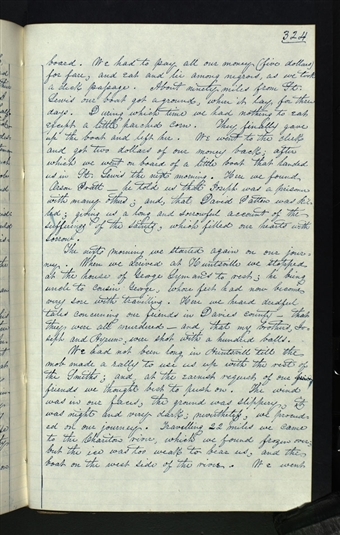 324
board. We had to pay all our money (five dollars)
for fare, and eat and lie among negros, as we took
a deck passage. About ninety miles from St.
Lewis our boat got aground, where it lay for three
days. During which time we had nothing to eat
except a little parched corn. They finally gave
up the boat and left her. We went to the clerk
and got two dollars of our money back; after
which we went on board of a little boat that landed
us in St. Lewis the next morning. Here we found
Orson Pratt — he told us that Joseph was a prisoner
with many others; and, that David Patten was kil-
led; giving us a long and sorrowful account of the
sufferings of the saints; which filled our hearts with
sorrow.
The next morning we started again on our jour-
ney. When we arived at Huntsville we stopped
at the house of George Lyman's to rest; he being
uncle to cousin George, whose feet had now become
very sore with traveling. Here we heard dreadful
tales concerning our friends in Davies county — that
they were all murdered — and, that my brothers, Jo-
seph and Hyrum, were shot with a hundred balls.
We had not been long in Huntsville till the
mob made a rally to use us up with the rest of
the Smiths; and, at the earnest request of our
friends we thought best to push on. The wind
was in our faces, the ground was slippery, it
was night and very dark; nevertheless, we proceed-
ed on our journey. Travelling 22 miles we came
to the Chariton river, which we found frozen over;
but the ice was too weak to bear us, and the
boat on the west side of the river. We went